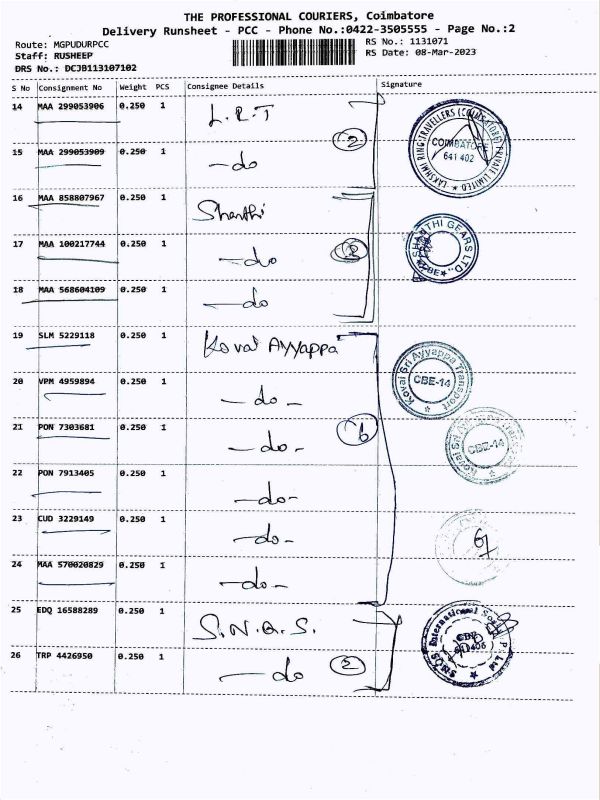 THE PROFESSIONAL COURIERS, Coimbatore
Delivery Runsheet - PCC - Phone No.:0422-3505555 - Page No.:2
Route: MGPUDURPCC
RS No.: 1131071
Staff: RUSHEEP
RS Date: 08-Mar-2023
DRS No.: DCJB113107102
S No Consignment No Weight PCS Consignee Details Signature
14 MAA 299053906 0.250 1 L.R.T
2
LAKSHMI RING TRAVELLERS (COIMBATORE) PRIVATE LIMITED
COIMBATORE
641 402
15 MAA 299053909 0.250 1 -do
16 MAA 858807967 0.250 1 Shanthi
17 MAA 100217744 0.250 1 -do
3
SHANTHI GEARS LTD
CBE
18 MAA 568604109 0.250 1 -do
19 SLM 5229118 0.250 1 Kovai Ayyappa
Kovai Sri Ayyappa Transport
CBE-14
20 VPM 4959894 0.250 1 -do-
21 PON 7303681 0.250 1 -do-
6
Kovai Sri Ayyappa Transport
CBE-14
22 PON 7913405 0.250 1 -do-
23 CUD 3229149 0.250 1 -do-
24 MAA 570020829 0.250 1 -do-
25 EDQ 16588289 0.250 1 S.N.Q.S.
SNQS International Socks P. Ltd
CBE
26 TRP 4426950 0.250 1 -do
2